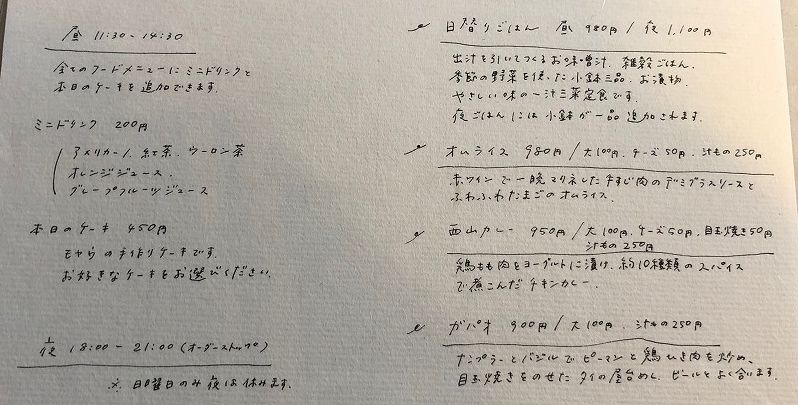 昼 11:30-14:30
全てのフードメニューにミニドリンクと
本日のケーキを追加できます。
ミニドリンク 200円
アメリカーノ、紅茶、ウーロン茶
オレンジジュース、
グレープフルーツジュース
本日のケーキ 450円
モヤらの手作りケーキです。
お好きなケーキをお選びください。
夜 18:00-21:00(オーダーストップ)
※日曜日のみ夜は休みます。
日替りごはん 昼980円/夜1,100円
出汁を引いてつくるお味噌汁、雑穀ごはん、
季節の野菜を使った小鉢三品、お漬物。
やさしい味の一汁三菜定食です。
夜ごはんには小鉢が一品追加されます。
オムライス 980円/大100円、チーズ50円、汁もの250円
赤ワインで一晩マリネした牛すじ肉のデミグラスソースと
ふわふわたまごのオムライス。
西山カレー 950円/大100円、チーズ50円、目玉焼き50円
汁もの250円
鶏もも肉をヨーグルトに漬け、約10種類のスパイス
で煮こんだチキンカレー。
ガパオ 900円/大100円、汁もの250円
ナンプラーとバジルでピーマンと鶏ひき肉を炒め、
目玉焼きをのせたタイの屋台めし。ビールとよく合います。